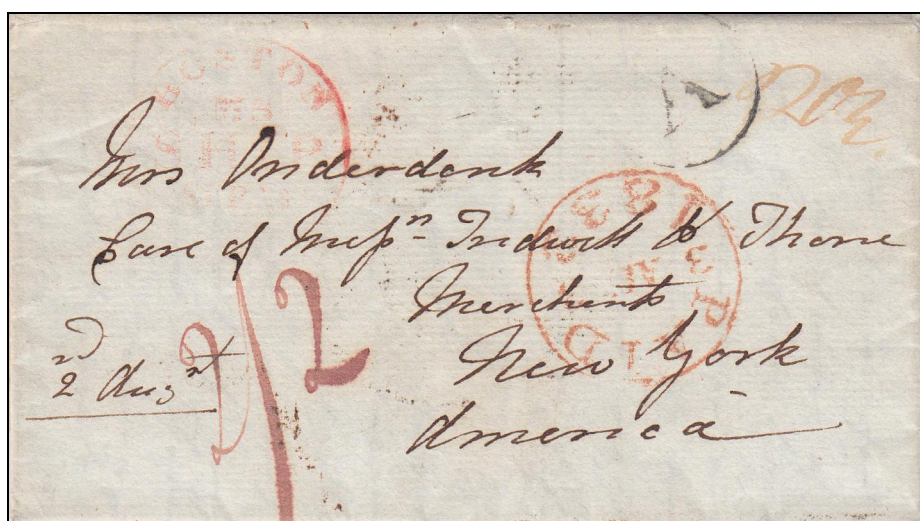 BOSTON
A
Mrs Onderdonk
Care of Messrs Tredwell & Thorne
PAID
Merchants
New York
America
2nd Augst
2/2